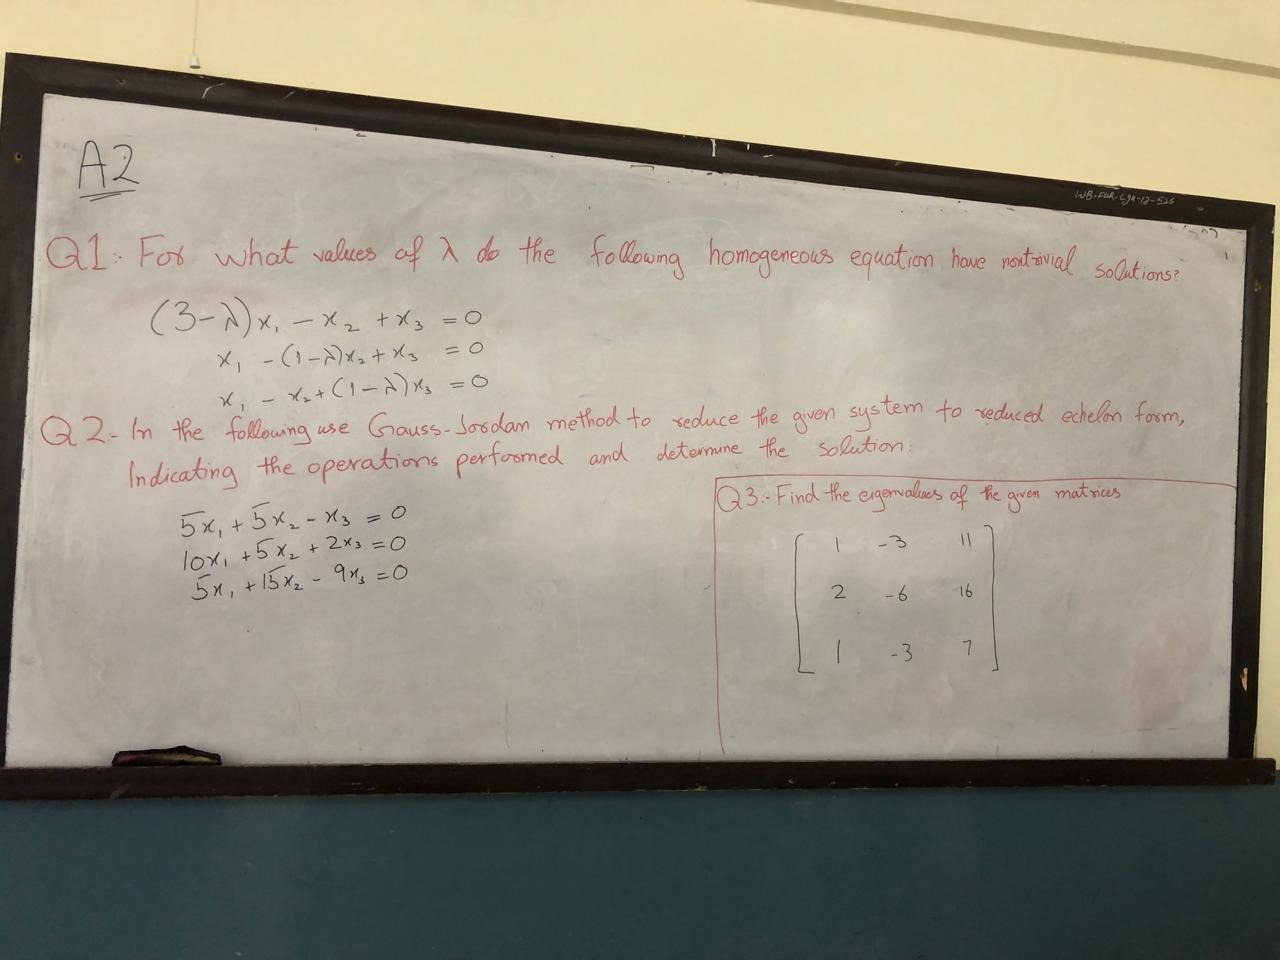 A2
WB-FUR-Lgh-12-526
Q1:- For what values of λ do the following homogeneous equation have nontrivial solutions?
(3-λ)x₁ - x₂ + x₃ = 0
x₁ - (1-λ)x₂ + x₃ = 0
x₁ - x₂ + (1-λ)x₃ = 0
Q2- In the following use Gauss-Jordan method to reduce the given system to reduced echelon form,
Indicating the operations performed and determine the solution:
5x₁ + 5x₂ - x₃ = 0
10x₁ + 5x₂ + 2x₃ = 0
5x₁ + 15x₂ - 9x₃ = 0
Q3:- Find the eigenvalues of the given matrices
1 -3 11
2 -6 16
1 -3 7